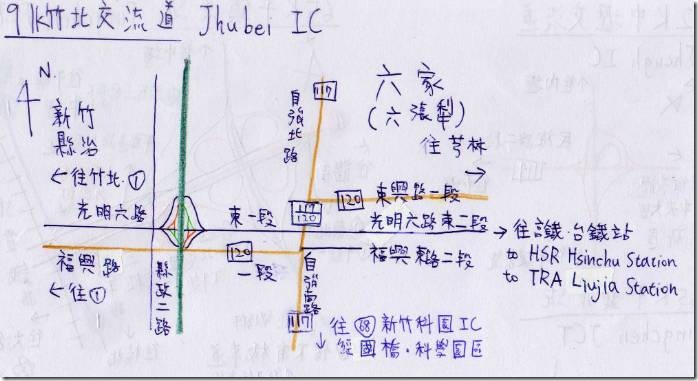 91k竹北交流道 Jhubei IC
N.
新竹
縣治
←往竹北①
光明六路
福興路
←往①
縣政二路
117
自強北路
六家
(六漲犁)
往芎林
→
120
東興路一段
117
120
東一段
光明六路東二段
120
一段
福興東路二段
→往高鐵·台鐵站
to HSR Hsinchu Station
to TRA Liujia Station
自強南路
117
往68新竹科園IC
↓經國橋·科學園區